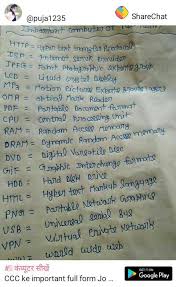 @puja1235
ShareChat
Important Computer
HTTP = Hyper text transfer Protocol
ISP = Internet service provider
JPEG = Joint Photographic
LCD = Liquid crystal display
MP3 = Motion Pictures Experts
OMR = optical Mark Reader
PDF = Portable Document format
CPU = central Processing Unit
RAM = Random Access memory
DRAM = Dynamic Random Access memory
DVD = Digital Versatile Disc
GIF = Graphic Interchange format
HDD = Hard Disk Drive
HTML = Hyper text Markup language
PNG = Portable Network Graphics
USB = Universal serial Bus
VPN = Virtual Private Network
world wide web
#कंप्यूटर सीखें
CCC ke important full form Jo ...
GET IT ON
Google Play